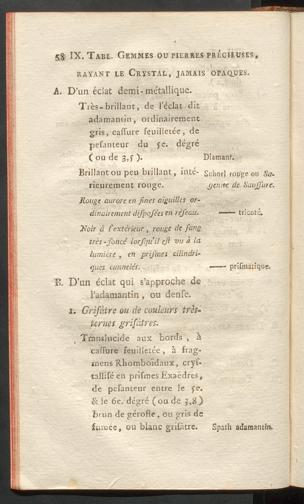 58 IX. TABL. GEMMES OU PIERRES PRÉCIEUSES,
RAYANT LE CRYSTAL, JAMAIS OPAQUES.
A. D'un éclat demi-métallique.
Très-brillant, de l'éclat dit
adamantin, ordinairement
gris, cassure feuilletée, de
pesanteur du 5e. dégré
(ou de 3,5). Diamant.
Brillant ou peu brillant, inté- Schorl rouge ou Sa-
rieurement rouge. genite de Saussure.
Rouge aurore en fines aiguilles or-
dinairement disposées en réseau. —— tricoté.
Noir à l'extérieur, rouge de sang
très-foncé lorsqu'il est vu à la
lumière, en prismes cilindri-
ques cannelés. —— prismatique.
B. D'un éclat qui s'approche de
l'adamantin, ou dense.
1. Grisâtre ou de couleurs très-
ternes grisâtres.
Translucide aux bords, à
cassure feuilletée, à frag-
mens Rhomboïdaux, crys-
tallisé en prismes Exaèdres,
de pesanteur entre le 5e.
& le 6e. dégré (ou de 3,8)
brun de gérofle, ou gris de
fumée, ou blanc grisâtre. Spath adamantin.